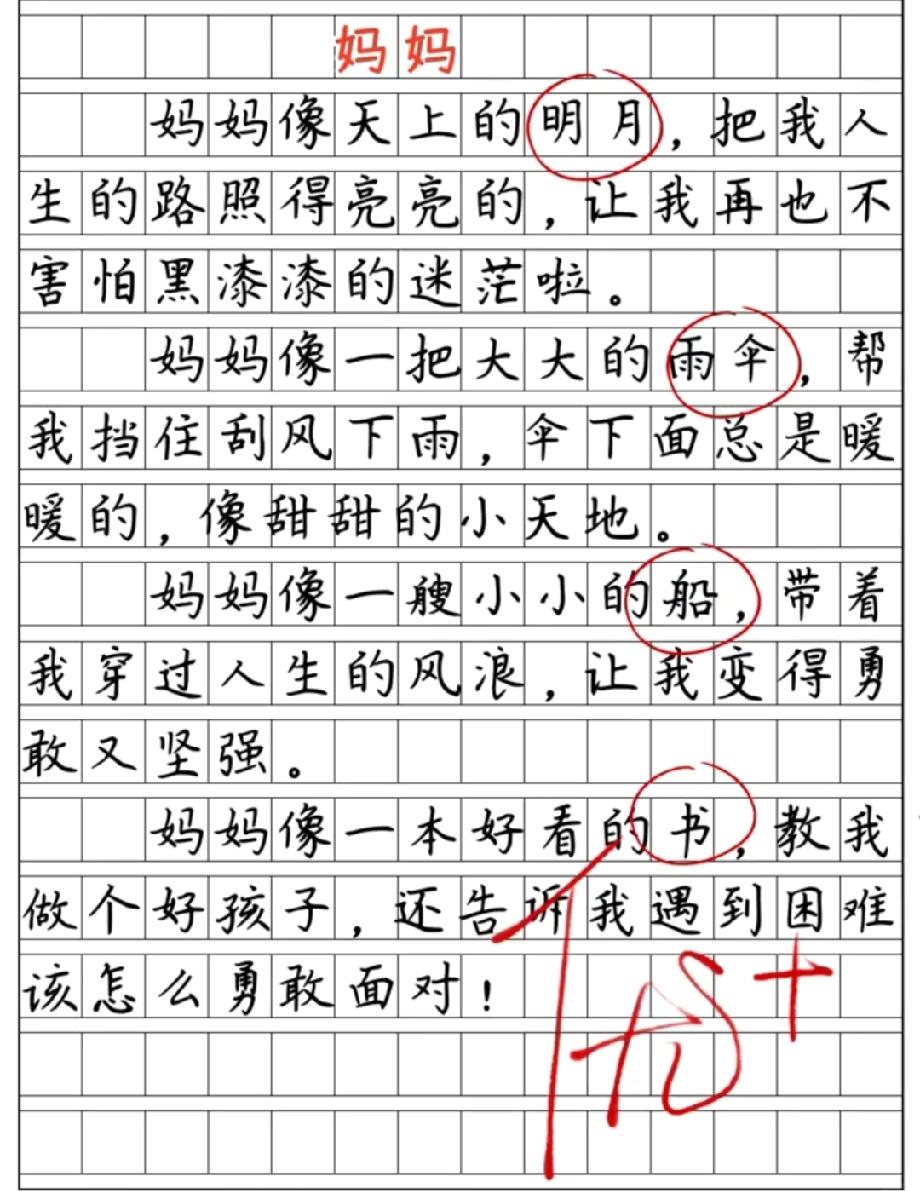 妈妈
妈妈像天上的明月，把我人
生的路照得亮亮的，让我再也不
害怕黑漆漆的迷茫啦。
妈妈像一把大大的雨伞，帮
我挡住刮风下雨，伞下面总是暖
暖的，像甜甜的小天地。
妈妈像一艘小小的船，带着
我穿过人生的风浪，让我变得勇
敢又坚强。
妈妈像一本好看的书，教我
做个好孩子，还告诉我遇到困难
该怎么勇敢面对！
优+